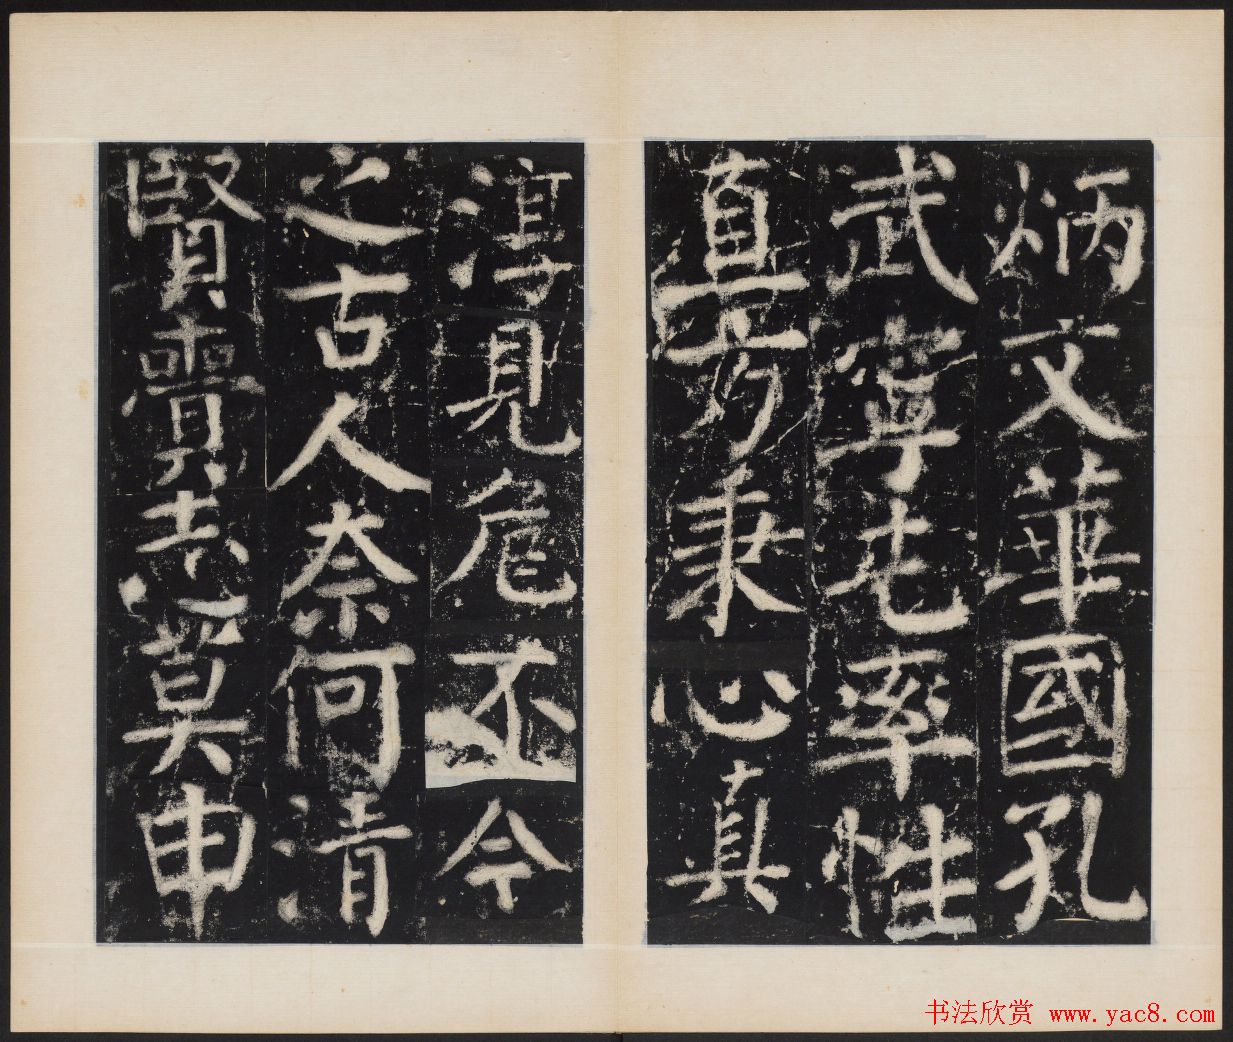 炳文華國孔
武寧屯率性
直方秉心真
淳見危不今
之古人奈何清
賢賷志莫申
书法欣赏 www.yac8.com